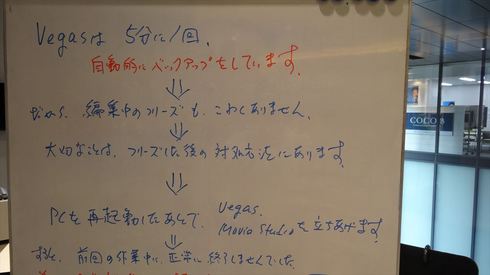 Vegasは 5分に1回、
自動的にバックアップをしています。
⇓
だから、編集中のフリーズも、こわくありません。
⇓
大切なことは、フリーズした後の対処方法にあります。
⇓
PCを再起動したあとで、Vegas、
Movie Studioを立ちあげます
⇓
すると、前回の作業中に、正常に終了しませんでした。
COCO